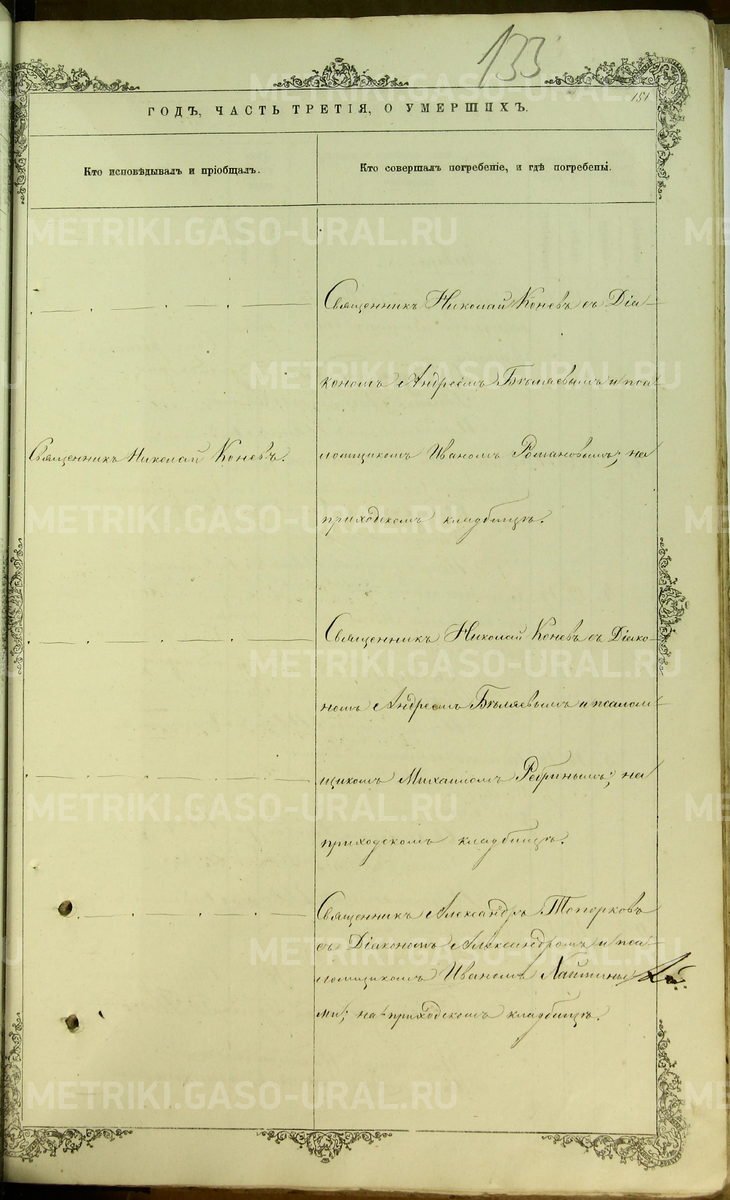 133
151
ГОДЪ, ЧАСТЬ ТРЕТІЯ, О УМЕРШИХЪ.
Кто исповѣдывалъ и пріобщалъ.
Кто совершалъ погребеніе, и гдѣ погребены.
Священникъ Николай Коневъ.
Священникъ Николай Коневъ съ Діа-
кономъ Андреемъ Бѣляевымъ и пса-
ломщикомъ Иваномъ Романовымъ; на
приходскомъ кладбищѣ.
Священникъ Николай Коневъ съ Діако-
номъ Андреемъ Бѣляевымъ и псалом-
щикомъ Михаиломъ; на
приходскомъ кладбищѣ.
Священникъ Александръ Топорковъ
съ Діакономъ Александромъ и пса-
ломщикомъ Иваномъ
ми; на приходскомъ кладбищѣ.
METRIKI.GASO-URAL.RU